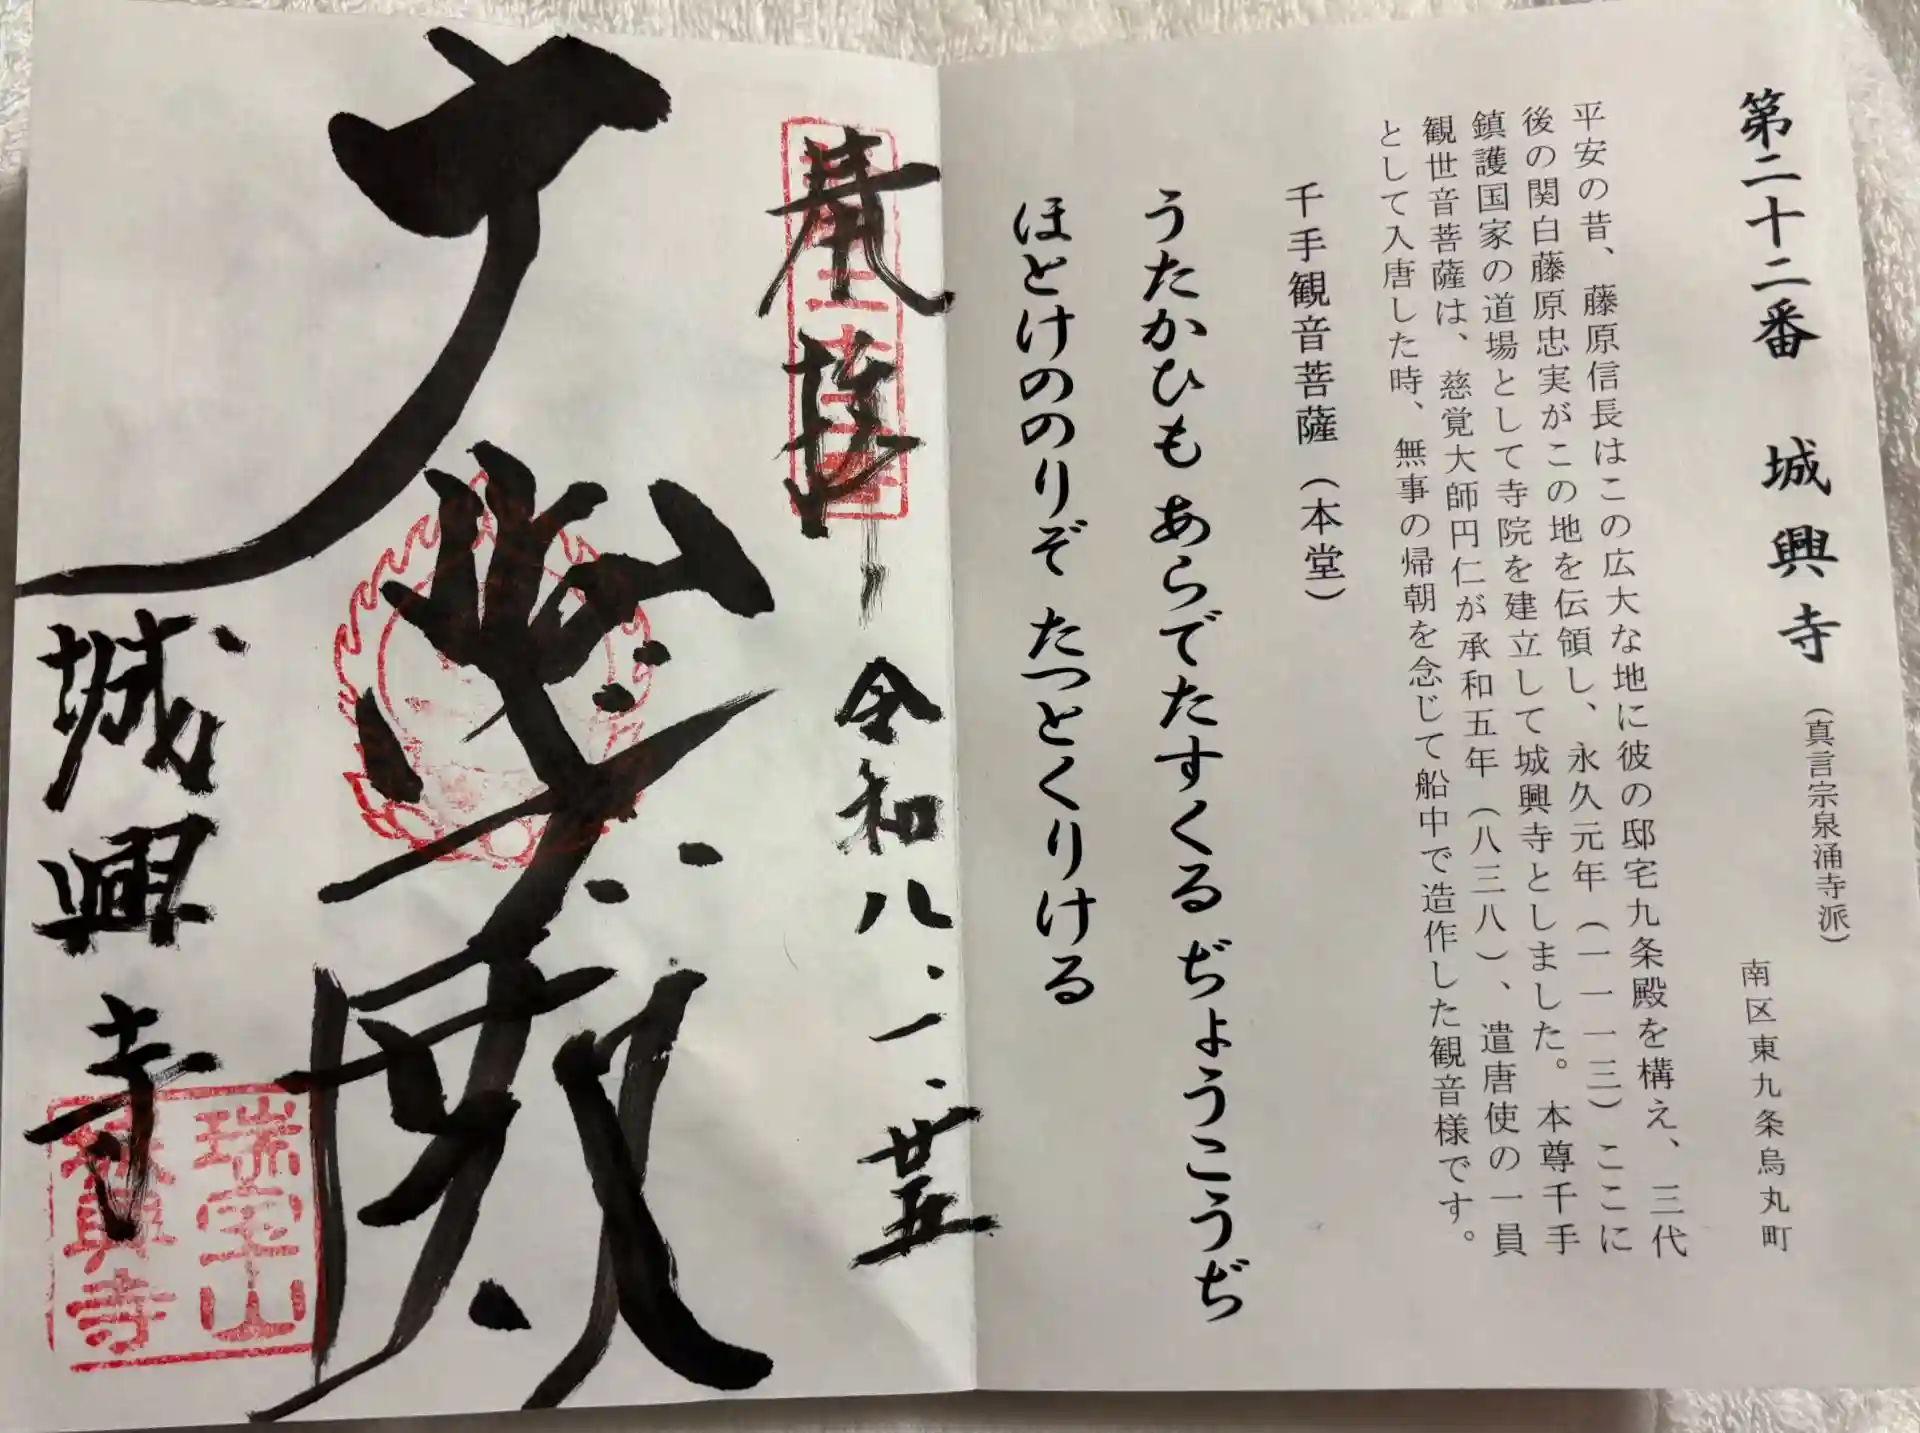 第二十二番　城興寺（真言宗泉涌寺派）
南区東九条烏丸町
平安の昔、藤原信長はこの広大な地に彼の邸宅九条殿を構え、三代
後の関白藤原忠実がこの地を伝領し、永久元年（一一一三）ここに
鎮護国家の道場として寺院を建立して城興寺としました。本尊千手
観世音菩薩は、慈覚大師円仁が承和五年（八三八）、遣唐使の一員
として入唐した時、無事の帰朝を念じて船中で造作した観音様です。
千手観音菩薩（本堂）
うたかひも あらでたすくる ぢょうこうぢ
ほとけののりぞ たつとくりける
奉拝
令和八.一.廿五
城興寺
瑞宝山
城興寺